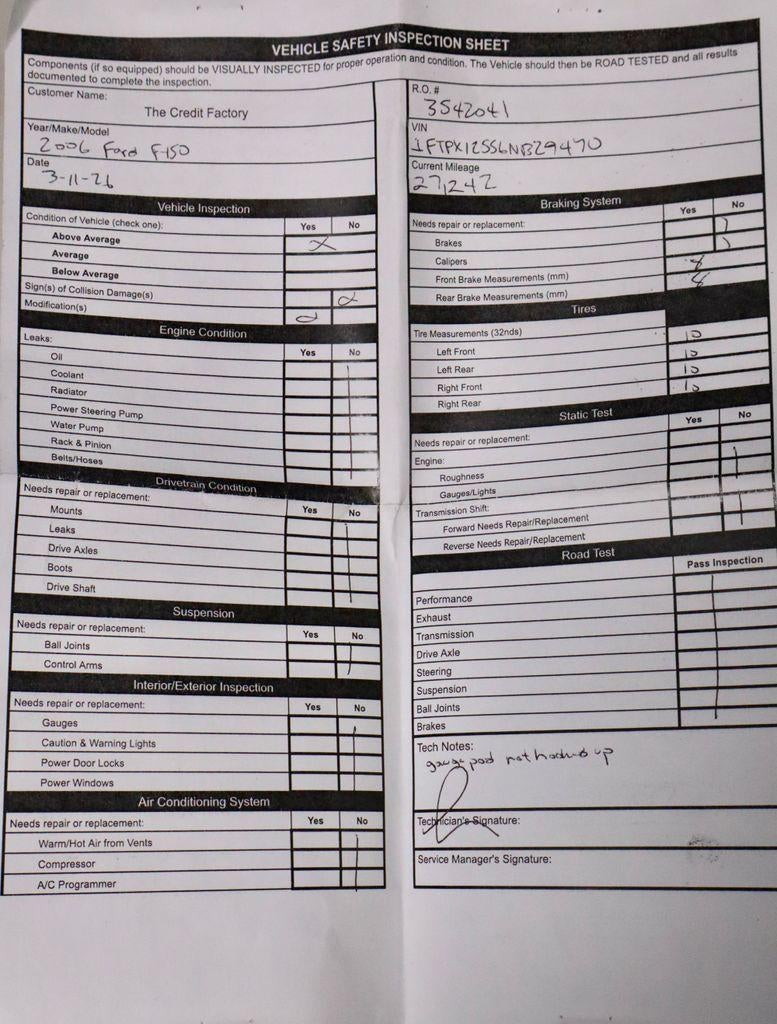 VEHICLE SAFETY INSPECTION SHEET
Components (if so equipped) should be VISUALLY INSPECTED for proper operation and condition. The Vehicle should then be ROAD TESTED and all results
documented to complete the inspection.
Customer Name:
The Credit Factory
Year/Make/Model
2006 Ford F-150
Date
3-11-26
Vehicle Inspection
Condition of Vehicle (check one):
Yes No
Above Average X
Average
Below Average
Sign(s) of Collision Damage(s)
Modification(s)
Engine Condition
Leaks: Yes No
Oil
Coolant
Radiator
Power Steering Pump
Water Pump
Rack & Pinion
Belts/Hoses
Drivetrain Condition
Needs repair or replacement: Yes No
Mounts
Leaks
Drive Axles
Boots
Drive Shaft
Suspension
Needs repair or replacement: Yes No
Ball Joints
Control Arms
Interior/Exterior Inspection
Needs repair or replacement: Yes No
Gauges
Caution & Warning Lights
Power Door Locks
Power Windows
Air Conditioning System
Needs repair or replacement: Yes No
Warm/Hot Air from Vents
Compressor
A/C Programmer
R.O. #
3542041
VIN
1FTPX12556NB29470
Current Mileage
27,242
Braking System
Needs repair or replacement: Yes No
Brakes
Calipers
Front Brake Measurements (mm) 8
Rear Brake Measurements (mm) 8
Tires
Tire Measurements (32nds)
Left Front 10
Left Rear 10
Right Front 10
Right Rear 10
Static Test
Needs repair or replacement: Yes No
Engine:
Roughness
Gauges/Lights
Transmission Shift:
Forward Needs Repair/Replacement
Reverse Needs Repair/Replacement
Road Test
Pass Inspection
Performance
Exhaust
Transmission
Drive Axle
Steering
Suspension
Ball Joints
Brakes
Tech Notes:
gauge pod not hooked up
Technician's Signature:
Service Manager's Signature: